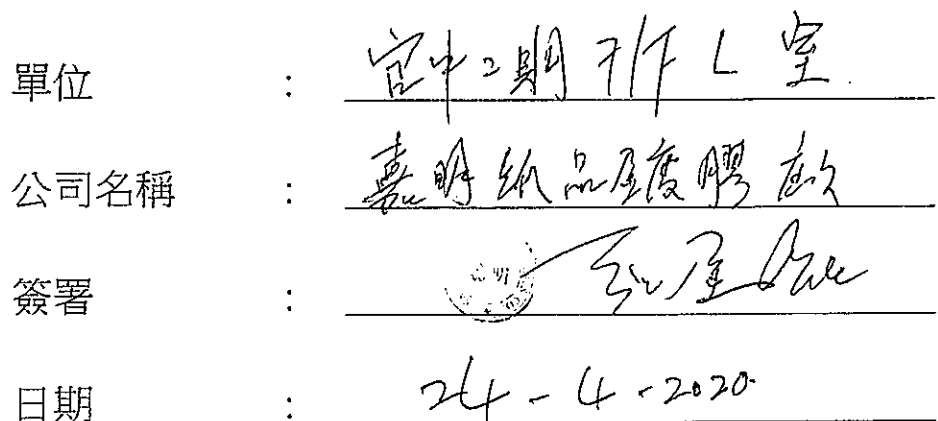 單位 : 官中二期 7/F L 室
公司名稱 : 嘉明紙品過膠廠
簽署 :
日期 : 24-4-2020